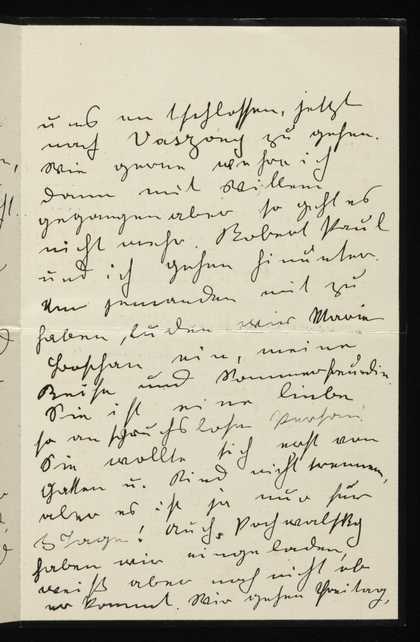 uns entschlossen, jetzt
nach Vaszony zu gehen.
Wie gerne wäre ich
dann mit Willem
gegangen aber so geht es
nicht mehr. Robert Paul
und ich gehen hinunter.
Um jemanden mit zu
haben, luden wir Marie
ein, meine
Reise und Sommerfreundin.
Sie ist eine liebe
so anspruchslose Person.
Sie wollte sich erst von
Gatten u. Kind nicht trennen,
aber es ist ja nur für
5 Tage! Auch
haben wir eingeladen,
weiß aber noch nicht ob
er kommt. Wir gehen Freitag,